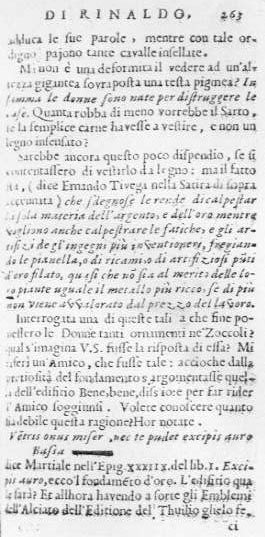 DI RINALDO, 263
adduca le sue parole, mentre con tale or-
digno pajono tante cavalle insellate.
Mi non è una deformita il vedere ad un'al-
tezza gigantea sovraposta una testa pigmea? In
somma le donne sono nate per distruggere le
case. Quanta robba di meno vorrebbe il Sarto,
se la semplice carne havesse a vestire, e non un
legno insensato?
Sarebbe ancora questo poco dispendio, se si
contentassero di vestirlo da legno: ma il fatto
sta, (dice Ernando Tivega nella Satira di sopra
accennata) che sdegnose le rende di calpestar
la sola materia dell'argento, e dell'oro mentre
vogliono anche calpestrare le fatiche, e gli ar-
tifizi de gl'ingegni più inventioneri, fregian-
do le pianella, o di ricamo, o di artifiziosi pūti
d'oro filato, quasi che nō sia al merito delle lo-
ro piante uguale il metallo più ricco, se di più
non viene avvalorato dal prezzo del lavoro.
Interrogata una di queste tali a che fine po-
nessero le Donne tanti ornamenti ne'Zoccoli?
qual s'imagina V.S. fusse la risposta di essa? Mi
riferì un'Amico, che fusse tale: accioche dalla
pretiosità del fondamento s'argomentasse quel-
la dell'edifitio Bene, bene, diss'io e per far rider
l'Amico soggiunsi. Volete conoscere quanto
sia debile questa ragione? Hor notate.
Vētris onus miser, nec te pudet excipis auro
Bassa
dice Martiale nell'Epig. XXXIIX. del lib. I. Exci-
pis auro, ecco'l fondamēto d'oro. L'edifitio qual
sarà? Et allhora havendo a sorte gli Emblemi
dell'Alciato dell'Editione del Thuilio glielo fe-
ci